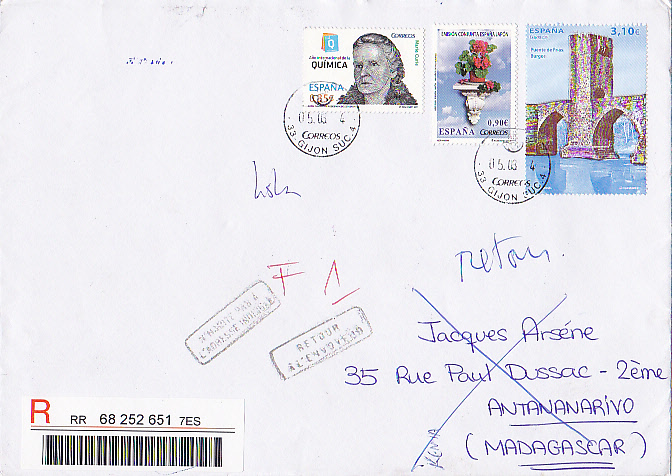 CORREOS
Marie Curie
Año Internacional de la
QUÍMICA
ESPAÑA
EMISIÓN CONJUNTA ESPAÑA JAPÓN
0,90€
ESPAÑA CORREOS
ESPAÑA 3,10€
CORREOS
Puente de Frías
Burgos
05.03 4
CORREOS
33 GIJON SUC.4
05.03 4
CORREOS
33 GIJON SUC.4
retour
F 1
N'HABITE PAS A
L'ADRESSE INDIQUEE
RETOUR
A L'ENVOYEUR
Jacques Arséne
35 Rue Paul Dussac - 2ème
ANTANANARIVO
(MADAGASCAR)
R RR 68 252 651 7ES